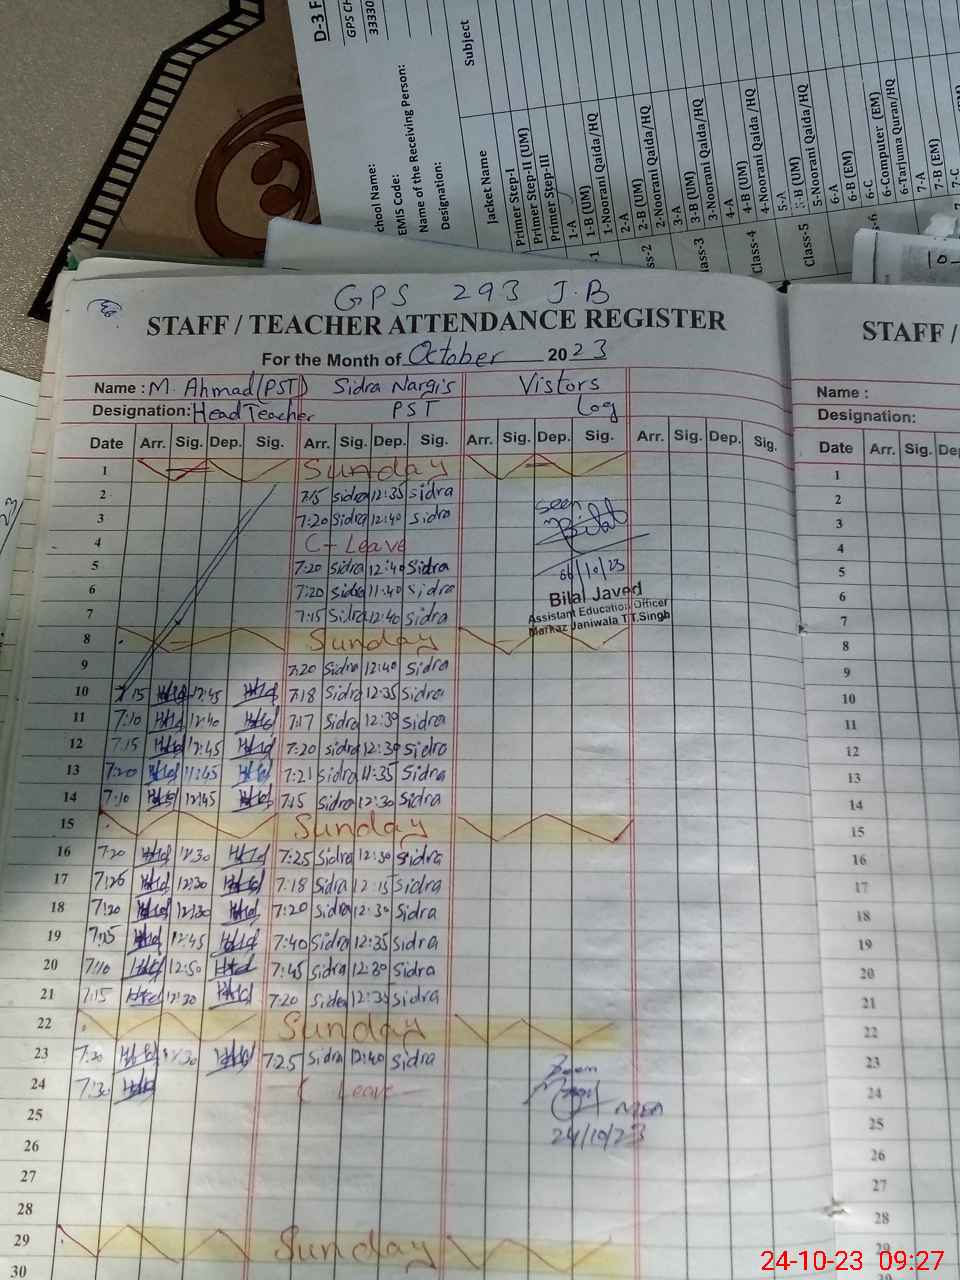 D-3 F
GPS Ch
33330
chool Name:
EMIS Code:
Name of the Receiving Person:
Designation:
Jacket Name Subject
Primer Step-I
Primer Step-II (UM)
Primer Step-III
1-A
1-B (UM)
1-Noorani Qaida/HQ
2-A
2-B (UM)
2-Noorani Qaida/HQ
3-A
3-B (UM)
3-Noorani Qaida/HQ
4-A
4-B (UM)
4-Noorani Qaida /HQ
5-A
5-B (UM)
5-Noorani Qaida/HQ
6-A
6-B (EM)
6-C
6-Computer (EM)
6-Tarjuma Quran/HQ
7-A
7-B (EM)
7-C
Class-4
Class-5
GPS 293 J.B
STAFF / TEACHER ATTENDANCE REGISTER
For the Month of October 2023
Name : M. Ahmad (PST) Sidra Nargis Vistors
Designation: Head Teacher PST Log
Date Arr. Sig. Dep. Sig. Arr. Sig. Dep. Sig. Arr. Sig. Dep. Sig. Arr. Sig. Dep. Sig.
1 Sunday
2 7:15 Sidra 12:35 Sidra
3 7:20 Sidra 12:40 Sidra
4 C-Leave
5 7:20 Sidra 12:40 Sidra
6 7:20 Sidra 11:40 Sidra
7 7:15 Sidra 12:40 Sidra
8 Sunday
9 7:20 Sidra 12:40 Sidra
10 7:15 12:45 7:18 Sidra 12:35 Sidra
11 7:10 12:40 7:17 Sidra 12:39 Sidra
12 7:15 12:45 7:20 Sidra 12:30 Sidra
13 7:20 11:45 7:21 Sidra 11:35 Sidra
14 7:10 12:45 7:15 Sidra 12:30 Sidra
15 Sunday
16 7:20 12:30 7:25 Sidra 12:30 Sidra
17 7:26 12:30 7:18 Sidra 12:15 Sidra
18 7:20 12:30 7:20 Sidra 12:30 Sidra
19 7:15 12:45 7:40 Sidra 12:35 Sidra
20 7:10 12:50 7:45 Sidra 12:30 Sidra
21 7:15 12:30 7:20 Sidra 12:35 Sidra
22 Sunday
23 7:30 12:30 7:25 Sidra 12:40 Sidra
24 7:30 C Leave
25
26
27
28
29 Sunday
30
Seen
Bilal
06/10/23
Bilal Javed
Assistant Education Officer
Markaz Janiwala T.T.Singh
Seen
MEA
24/10/23
STAFF /
Name :
Designation:
Date Arr. Sig. De
1
2
3
4
5
6
7
8
9
10
11
12
13
14
15
16
17
18
19
20
21
22
23
24
25
26
27
28
29
24-10-23 09:27